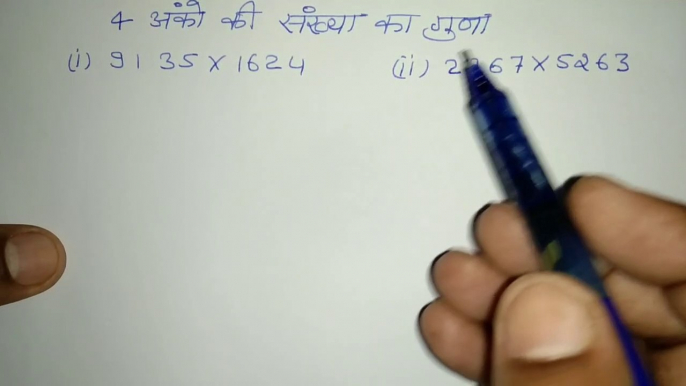 4 अंको की संख्या का गुणा
(i) 9135 × 1624 (ii) 2267 × 5263